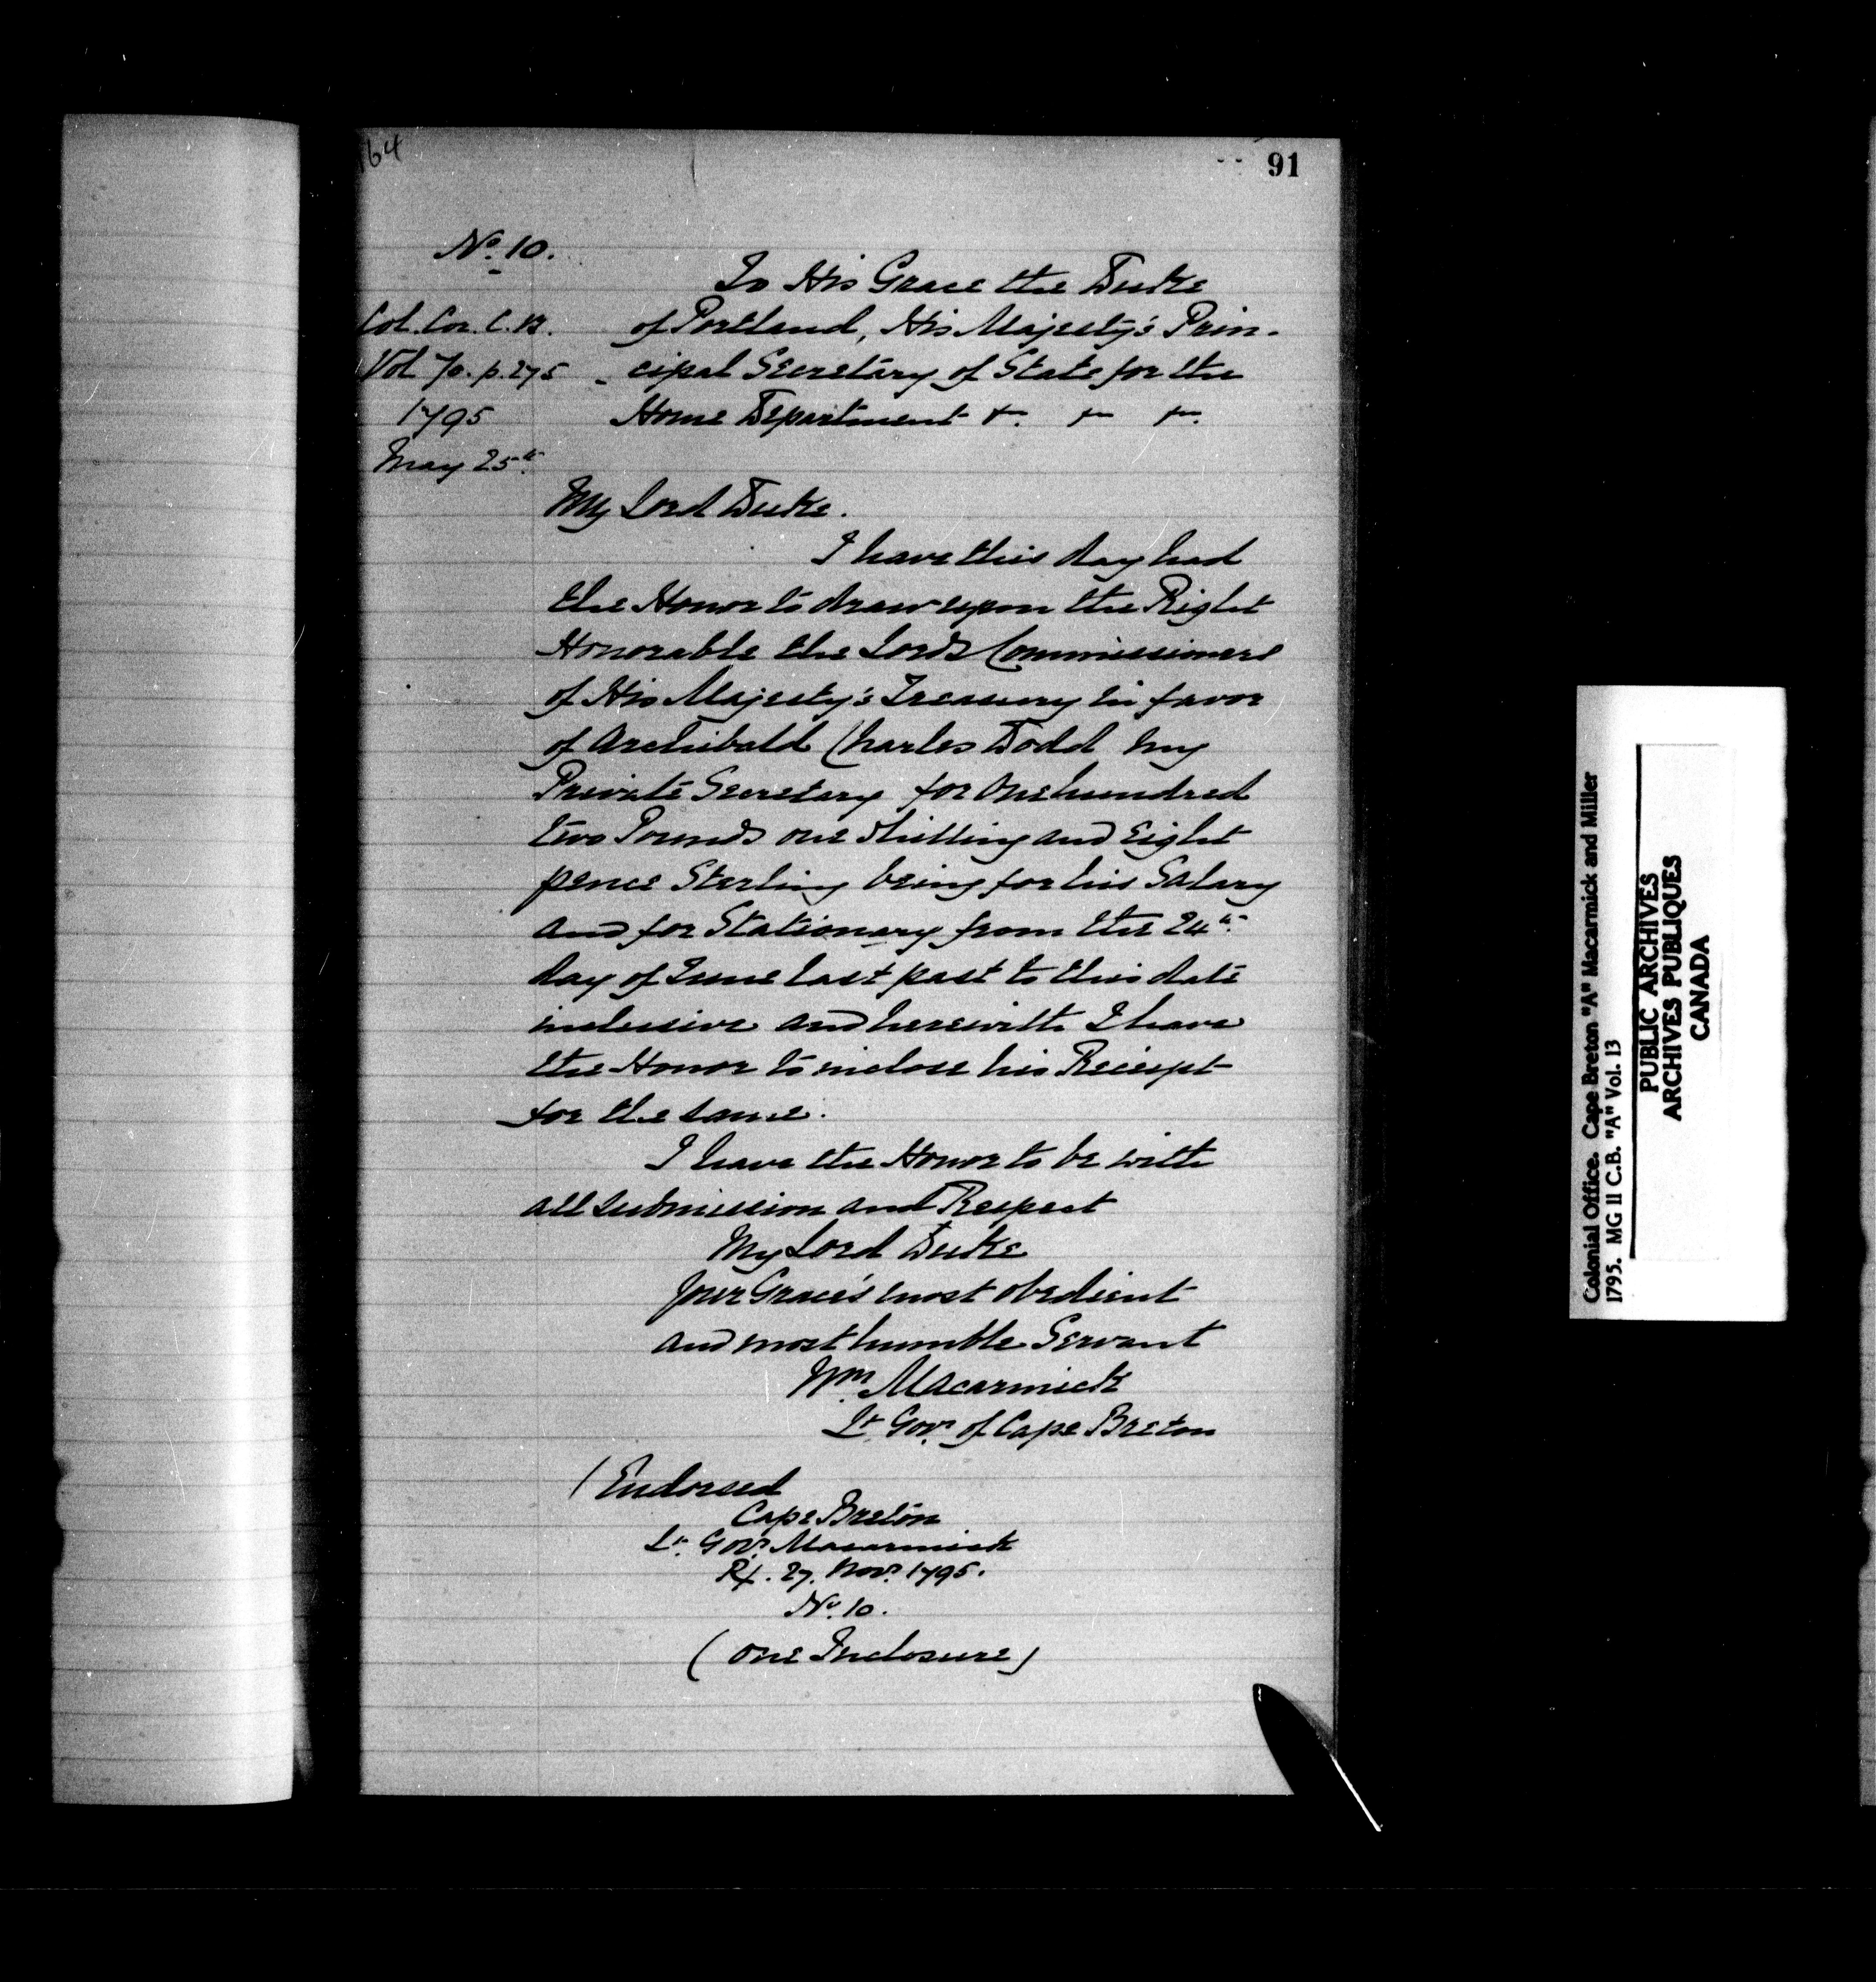 164
91
No. 10.
To His Grace the Duke
Col. Cor. C. B. of Portland, His Majesty's Prin-
Vol 70. p. 275 cipal Secretary of State for the
1795 Home Department &. &. &.
May 25th
My Lord Duke.
I have this day had
the Honor to draw upon the Right
Honorable the Lords Commissioners
of His Majesty's Treasury in favor
of Archibald Charles Dodd my
Private Secretary for One hundred
two Pounds one Shilling and Eight
pence Sterling being for his Salary
and for Stationary from the 24th
day of June last past to this date
inclusive and herewith I have
the Honor to inclose his Receipt
for the same.
I have the Honor to be with
all submission and Respect
My Lord Duke
Your Grace's most obedient
and most humble Servant
Wm Macarmick
Lt. Govr. of Cape Breton
(Endorsed
Cape Breton
Lt. Govr. Macarmick
Rx. 27. Novr. 1795.
No. 10.
(One Inclosure)
Colonial Office. Cape Breton "A" Macarmick and Miller
1795. MG 11 C.B. "A" Vol. 13
PUBLIC ARCHIVES
ARCHIVES PUBLIQUES
CANADA